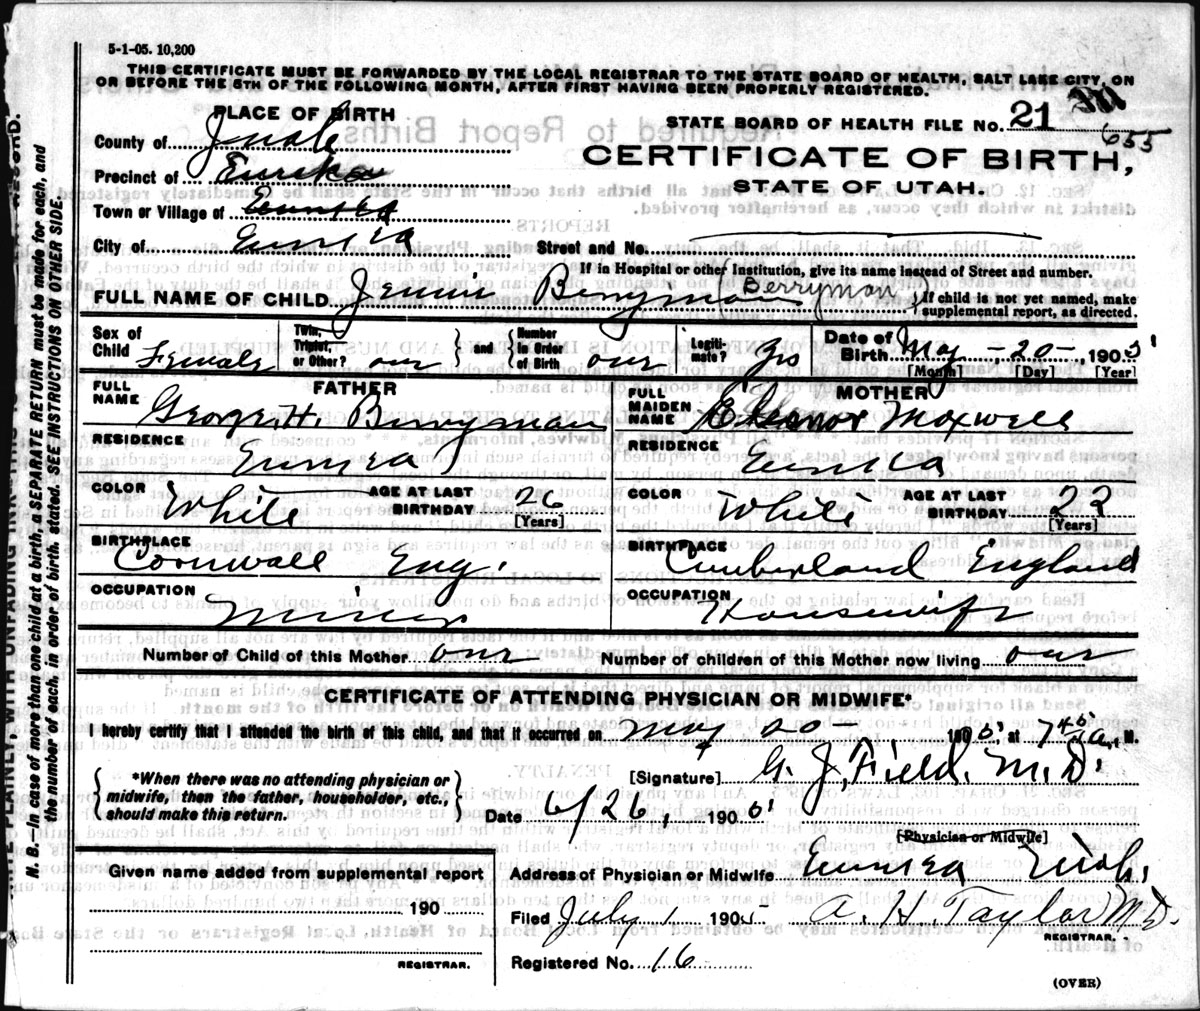 5-1-05. 10,200
THIS CERTIFICATE MUST BE FORWARDED BY THE LOCAL REGISTRAR TO THE STATE BOARD OF HEALTH, SALT LAKE CITY, ON
OR BEFORE THE 5TH OF THE FOLLOWING MONTH, AFTER FIRST HAVING BEEN PROPERLY REGISTERED.
PLACE OF BIRTH
County of Juab
Precinct of Eureka
Town or Village of Eureka
City of Eureka
STATE BOARD OF HEALTH FILE No. 21
655
CERTIFICATE OF BIRTH,
STATE OF UTAH.
Street and No.
If in Hospital or other Institution, give its name instead of Street and number.
FULL NAME OF CHILD Jennie Berryman (Berryman)
If child is not yet named, make
supplemental report, as directed.
Sex of Child Female
Twin, Triplet, or Other? one and Number in Order of Birth one
Legitimate? yes
Date of Birth May 20 1905
[Month] [Day] [Year]
FATHER
FULL NAME George H. Berryman
RESIDENCE Eureka
COLOR White AGE AT LAST BIRTHDAY 26 [Years]
BIRTHPLACE Cornwall Eng.
OCCUPATION Miner
MOTHER
FULL MAIDEN NAME Eleanor Maxwell
RESIDENCE Eureka
COLOR White AGE AT LAST BIRTHDAY 22 [Years]
BIRTHPLACE Cumberland England
OCCUPATION Housewife
Number of Child of this Mother one
Number of children of this Mother now living one
CERTIFICATE OF ATTENDING PHYSICIAN OR MIDWIFE*
I hereby certify that I attended the birth of this child, and that it occurred on May 20 1905, at 7 45 a. M.
*When there was no attending physician or
midwife, then the father, householder, etc.,
should make this return.
[Signature] G. J. Field, M.D.
Date 6/26, 1905
[Physician or Midwife]
Given name added from supplemental report
190
REGISTRAR.
Address of Physician or Midwife Eureka Utah.
Filed July 1 1905 A. H. Taylor M.D.
REGISTRAR.
Registered No. 16
(OVER)
WRITE PLAINLY, WITH UNFADING INK
RECORD.
N. B.—In case of more than one child at a birth, a SEPARATE RETURN must be made for each, and
the number of each, in order of birth, stated. SEE INSTRUCTIONS ON OTHER SIDE.